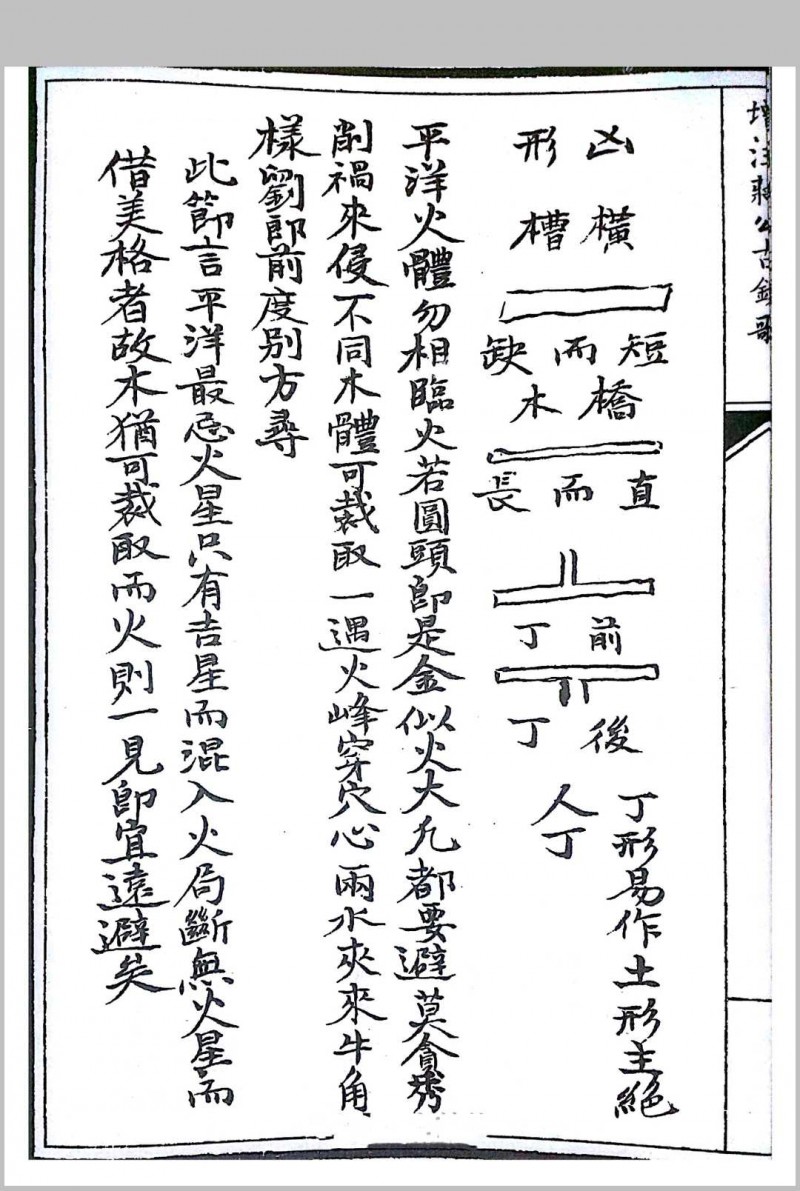 增注蔣公古鏡歌
凶形
橫槽
短而缺
橋木
直而長
前丁
後丁
丁形易作土形主絕
人丁
平洋火體勿相臨火若圓頭即是金似火大凡都要避莫貪秀
削禍來侵不同木體可裁取一遇火峰穿穴心兩水夾來牛角
樣劉郎前度別方尋
此節言平洋最忌火星只有吉星而混入火局斷無火星而
借美格者故木猶可裁取而火則一見即宜遠避矣